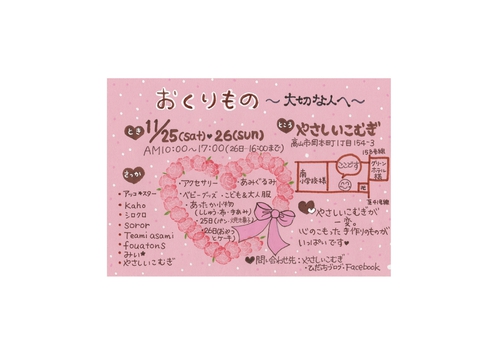 おくりもの 〜大切な人へ〜
とき 11/25(sat)♥26(sun)
AM10:00〜17:00(26日 16:00まで)
ところ やさしいこむぎ
高山市岡本町1丁目154-3
158号線
ここです
グリーン
ホテル
様
南
小学校様
至41号線
さっか
・kaho
・シロクロ
・soror
・Teami asami
・fouatons
・みい
・やさしいこむぎ
・アクセサリー ・あみぐるみ
・ベビーグッズ ・こども&大人服
・あったか小物
・25日(パン・焼き菓子)
♥やさしいこむぎが
一変。
心のこもった手作りのものが
いっぱいです♥
♥問い合わせ先:やさしいこむぎ
・ひだっちブログ・Facebook